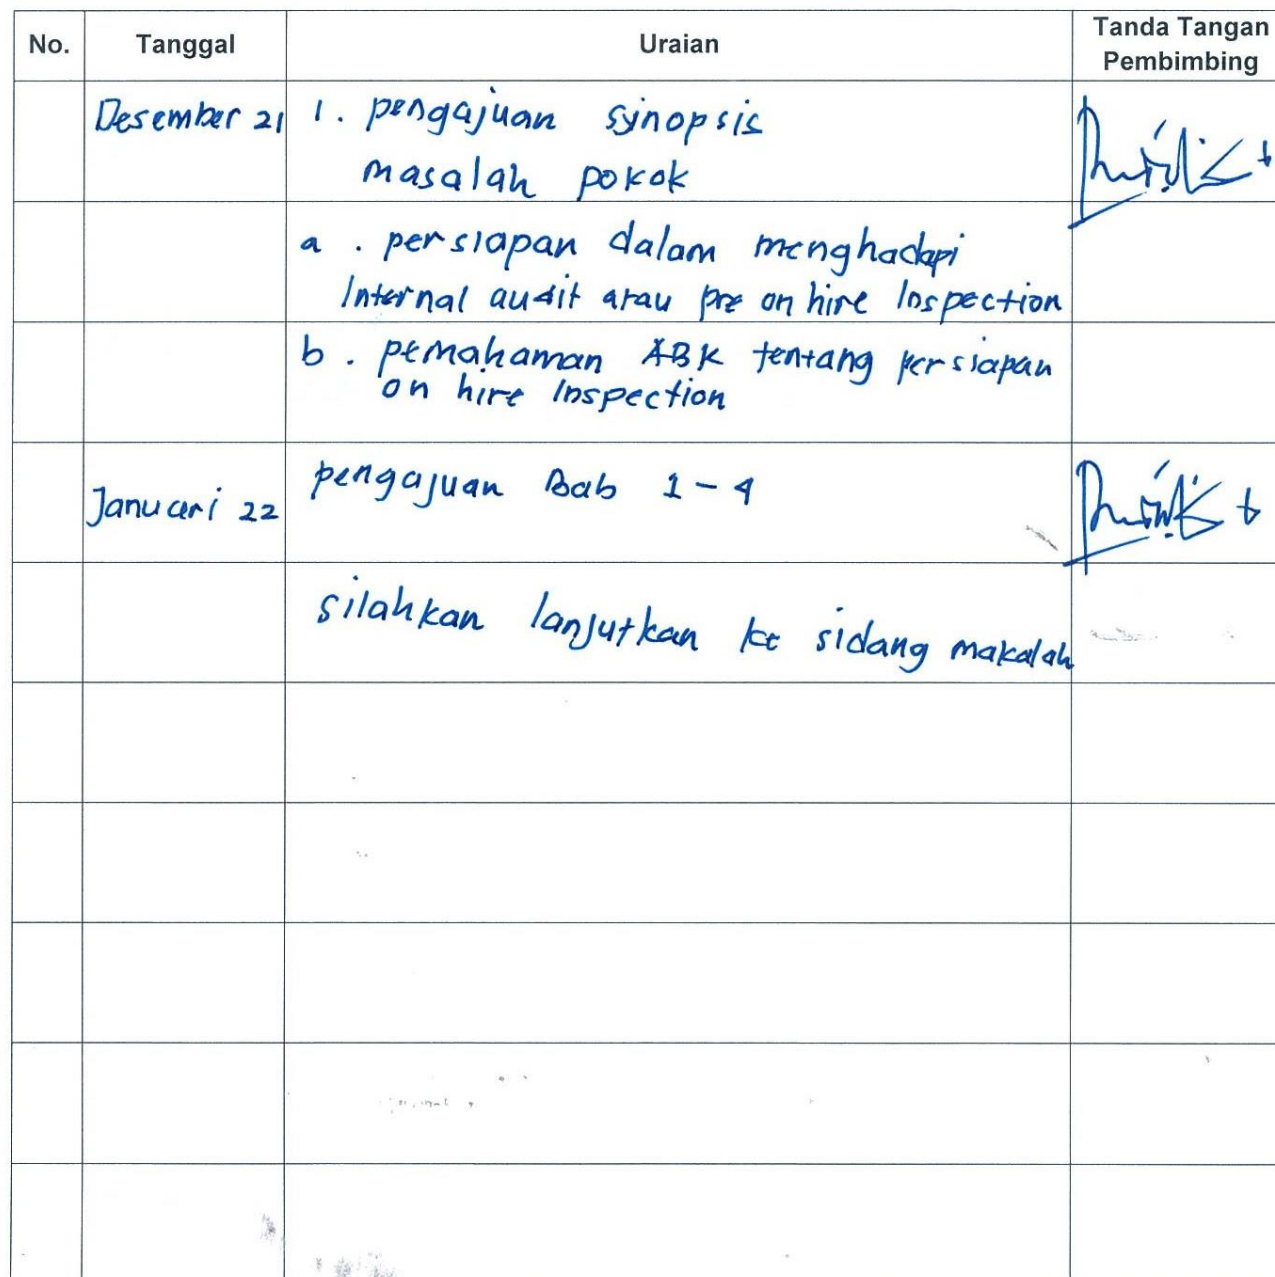 No. Tanggal Uraian Tanda Tangan Pembimbing
Desember 21 1. pengajuan synopsis
masalah pokok
a. persiapan dalam menghadapi
Internal audit atau pre on hire Inspection
b. pemahaman ABK tentang persiapan
on hire Inspection
Januari 22 pengajuan Bab 1-4
silahkan lanjutkan ke sidang makalah